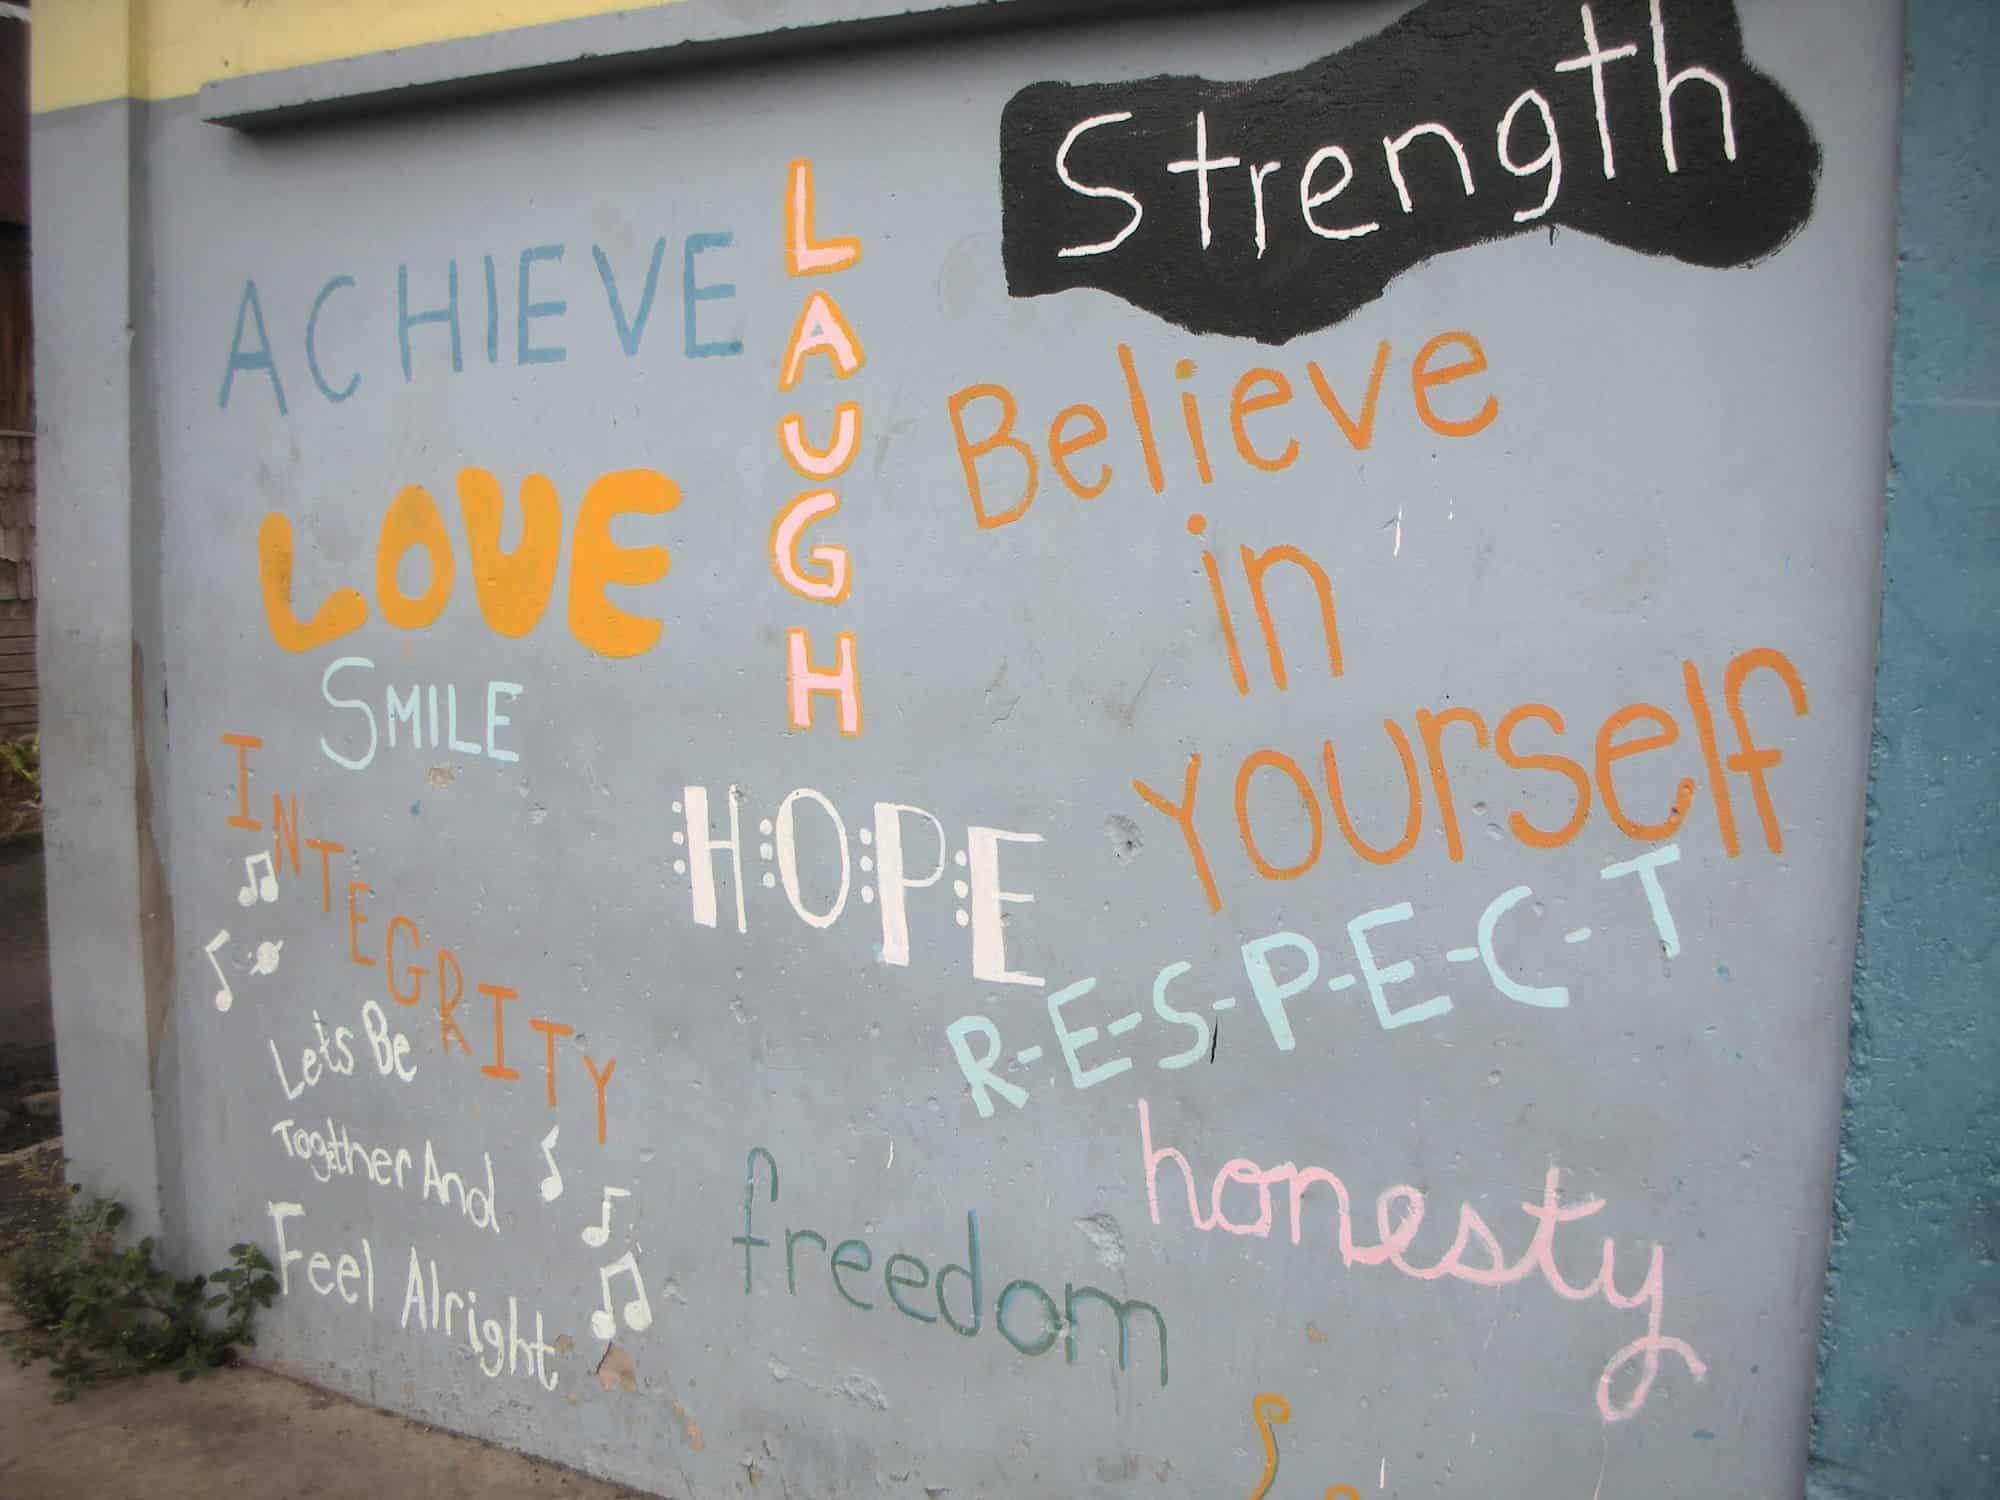 Strength
ACHIEVE
LAUGH
Believe
in
Yourself
LOVE
SMILE
INTEGRITY
HOPE
R-E-S-P-E-C-T
Let's Be
Together And
Feel Alright
honesty
freedom